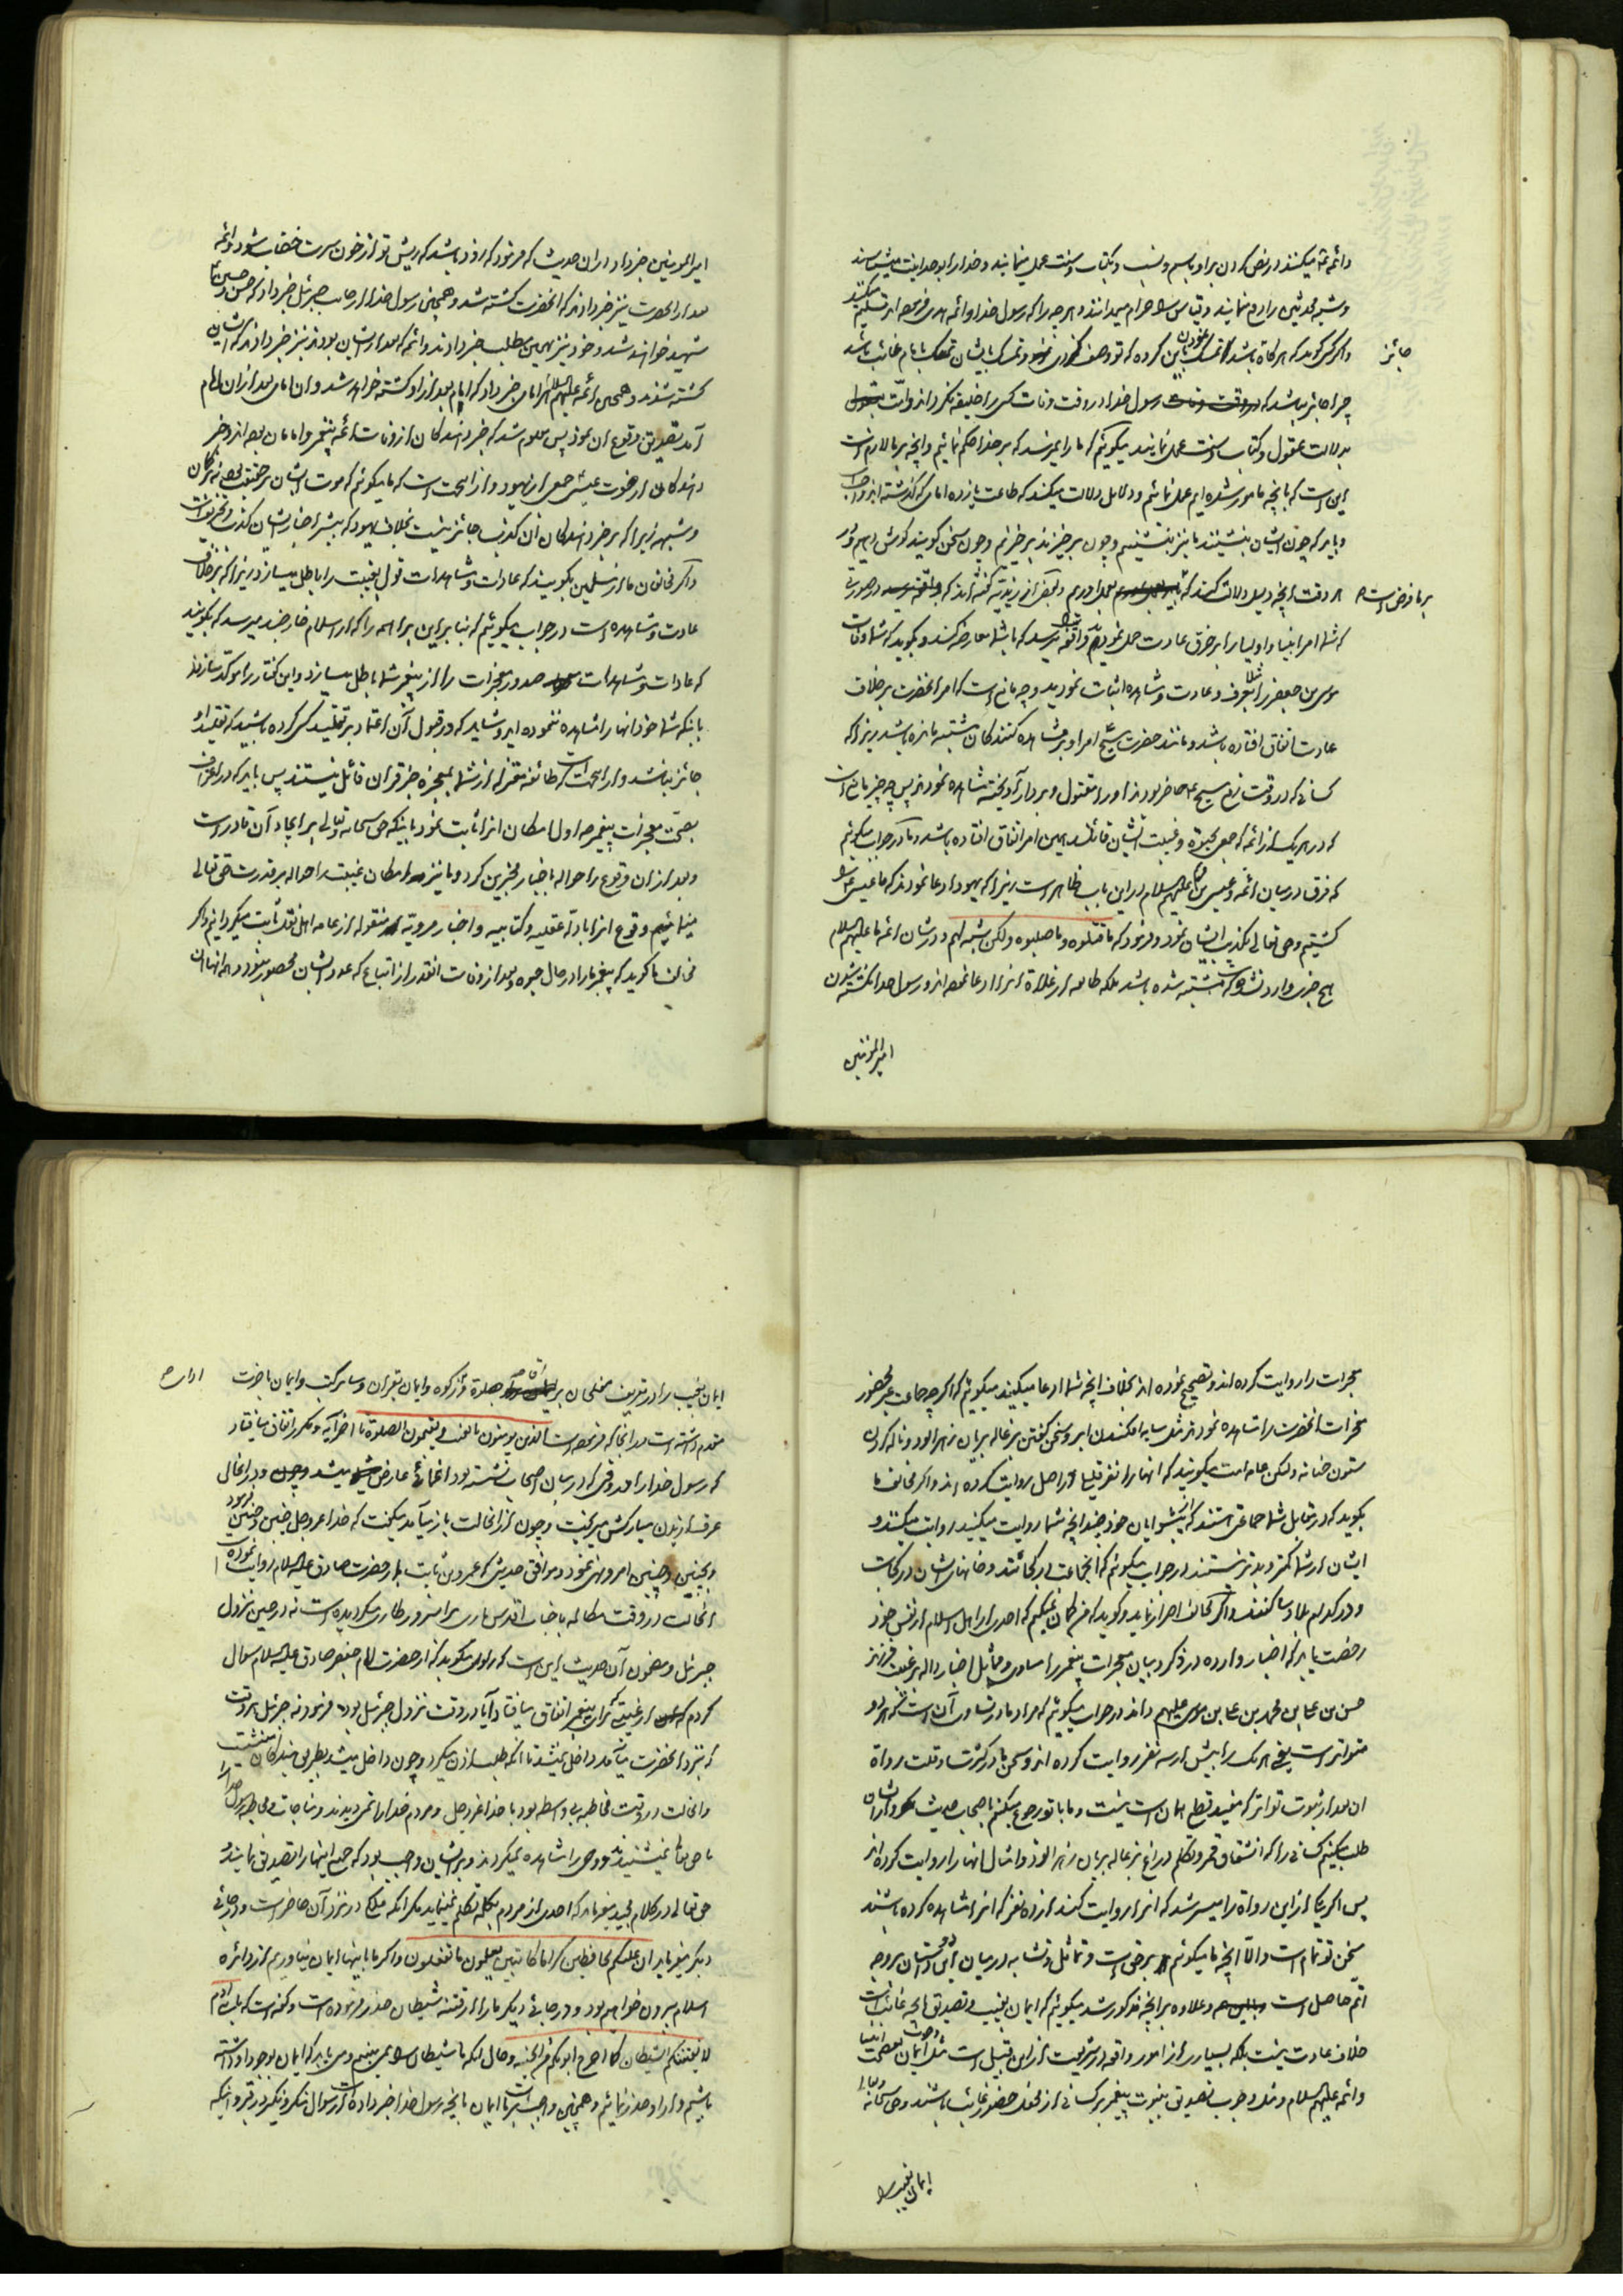 وائمه میکنند در نص کردن بر او باسم و نسب و بکتاب و سنت عمل مینمایند و خدا را بوحدانیت میشناسند
و شبه ملحدین را رد مینمایند و قیاس را حرام میدانند و هر چه را که رسول خدا و ائمه هدی فرموده اند تسلیم میکنند
و اگر کسی گوید که هرگاه باشد تمسک باین کرده که تو وصف کردی و تمسک بایشان تمسک بامام غائب باشد
جائز
چرا جائز نباشد که رسول خدا در وقت وفات کسی را خلیفه نگرداند و امت
بدلالت عقول و کتاب و سنت عمل نمایند میگوئیم که ما را نمیرسد که بر خدا حکم نمائیم و آنچه بر ما لازم است
این است که بانچه مامور شده ایم عمل نمائیم و دلایل دلالت میکند که طاعت یازده امامی که گذشته اند واجب
و باید که چون ایشان بنشینند ما نیز بنشینیم و چون برخیزند برخیزیم و چون سخن گویند گوش دهیم
بر ما فرض است
هر وقت آنچه دلیل دلالت کند که بعمل اوریم و بعضی از زیدیه گفته اند که در صورت
که شما امر انبیا و اولیا را بر خرق عادت حمل نمودید واقفیه را میرسد که با شما معارضه کنند و بگوید که شما وفات
موسی بن جعفر را مثلا بعرف و عادت و مشاهده اثبات نمودید و چه مانع است که امر آنحضرت بر خلاف
عادت اتفاق افتاده باشد و مانند حضرت مسیح امر او بر مشاهده کنندگان مشتبه مانده باشد زیرا که
کسانی که در وقت زعم مسیح حاضر بودند او را مقتول و بردار آویخته مشاهده نمودند پس چه چیز مانع است
که در هر یک از ائمه که جمعی بحیوة و غیبت ایشان قائلند همین امر اتفاق افتاده باشد و ما در جواب میگوئیم
که فرق در میان ائمه و عیسی علیهم السلام در این باب ظاهر است زیرا که یهود ادعا نمودند که ما عیسی را
کشتیم و حق تعالی تکذیب ایشان نمود و فرمود که ما قتلوه و ما صلبوه ولکن شبه لهم و در شان ائمه ما علیهم السلام
هیچ خبری وارد نشده که مشتبه شده باشد بلکه طایفه از غلاة انرا ادعا نموده اند و رسول خدا بکشته شدن
امیر المؤمنین
امیر المؤمنین خبر داد در ان حدیث که فرمود که زود باشد که ریش تو از خون سرت خضاب شود و ائمه
بعد از آنحضرت نیز خبر دادند که آنحضرت کشته شد و همچنین رسول خدا از جانب جبرئیل خبر داد که حسن و حسین
شهید خواهند شد و خود نیز بهمین مطلب خبر دادند و ائمه که بعد از ایشان بودند نیز خبر دادند که ایشان
کشته شدند و همچنین ائمه علیهم السلام هر امامی خبر داد که امام بعد از او کشته خواهد شد و ان امامی بعد از ان امام
آمد تصدیق وقوع ان نمود پس معلوم شد که خبر دهندگان از وفات ائمه پیغمبر و امامان بوده اند و خبر
دهندگان از فوت عیسی جمعی از یهود و از این جهت است که ما میگوئیم که موت ایشان بر حقیقت بوده نه بر گمان
و شبهه زیرا که بر خبر دهندگان ان کذب جائز نیست بخلاف یهود که بیشتر اخبار ایشان کذب و تحریف است
و اگر مخالفان ما از مسلمین بگویند که عادات و مشاهدات قول بغیبت را باطل میسازد زیرا که بر خلاف
عادت و مشاهده است در جواب میگوئیم که بنا بر این براهمه را که از اسلام خارجند میرسد که بگویند
که عادات و مشاهدات صدور معجزات را از پیغمبر شما باطل میسازد و این گفتار را موکد سازند
باینکه شما خود انها را مشاهده ننموده اید و شاید که در قبول آن اعتماد بر تقلید کسی کرده باشید که تقلید او
جائز نباشد و از این جهت است که طائفه معتزله از شما بمعجزه جز قران قائل نیستند پس باید که در اعتراف
بصحت معجزات پیغمبر اول امکان انرا ثابت نمود باینکه حق سبحانه و تعالی بر ایجاد آن قادر است
و بعد از ان وقوع را حواله باخبار مخبرین کرد و ما نیز امکان غیبت را حواله بر قدرت حق تعالی
مینمائیم و وقوع انرا بادله عقلیه و کتابیه و اخبار مرویه منقوله از عامه اهل نقل ثابت میگردانیم و اگر
مخالف ما گوید که پیغمبر ما را در حال حیوة و بعد از وفات انقدر از اتباع که عدد ایشان محصور نبود و همه انها ان
معجزات را روایت کرده اند و تصحیح نموده اند بخلاف انچه شما ادعا میکنید میگوییم که اگر چه جماعت غیر محصور
معجزات آنحضرت را مشاهده نمودند مثل سایه افکندن ابر و سخن گفتن بزغاله بریان زهر الود و ناله کردن
ستون حنانه ولکن عامه امت میگویند که انها را نفر قلیل در اصل روایت کرده اند و اگر مخالف ما
بگوید که در مقابل شما جماعتی هستند که از پیشوایان خود چند انچه شما روایت میکنید روایت میکنند و
ایشان از شما کمتر و بدتر نیستند در جواب میگوئیم که انجماعت در کجائند و خانهای ایشان در کجاست
و در کدام بلاد ساکنند و اگر مخالف اصرار نماید و گوید که من گمان نمیکنم که احدی از اهل اسلام از نفس خود
رخصت یابد که اخبار وارده در ذکر و بیان معجرات پیغمبر را مساوی و مماثل اخبار داله بر غیبت فرزند
حسن بن علی بن محمد بن علی بن موسی علیهم داند در جواب میگوئیم که مراد ما در تساوی آن است که هر دو
متواتر است یعنی هر یک را بیش از سه نفر روایت کرده اند و سخن ما در کثرت و قلت رواة
ان بعد از ثبوت تواتر که مفید قطع بهمان است نیست و ما با تو رجوع میکنیم باصحاب حدیث و از ایشان
طلب میکنیم کسانی را که انشقاق قمر و تکلم ذراع بزغاله بریان زهر الود و امثال انها را روایت کرده اند
پس اگر یکی از این رواة را میسر شد که انرا روایت کند از ده نفر که انرا مشاهده کرده باشند
سخن تو تمام است و الا آنچه ما میگوئیم بر حق است و تماثل و تشابه در میان این دو داستان بر وجه
اتم حاصل است و علاوه بر انچه مذکور شد میگوئیم که ایمان بغیب و تصدیق انچه غائب است
خلاف عادت نیست بلکه بسیاری از امور واقعه در شریعت از این قبیل است مثل ایمان بعصمت انبیا
و ائمه علیهم السلام و مثل وجوب تصدیق بنبوت پیغمبر بر کسانی که از محفل حضور غائب باشند و حق سبحانه و تعالی
ایمان بغیب را
ایمان بغیب را در تعریف مفلحان بر اقامه صلوة و زکوة و ایمان بقران و سایر کتب و ایمان باخرت
ادا
مقدم داشته است در انجا که فرموده است الذین یومنون بالغیب و یقیمون الصلوة تا اخر آیه و مکرر اتفاق میافتاد
که رسول خدا را در وقتی که در میان اصحاب نشسته بود اغمائی عارض میشد و در انحال
عرق از بدن مبارکش میریخت و چون از انحالت باز میآمد میگفت که خدا عز و جل چنین و چنین فرمود
و بچنین و چنین امر و نهی نمود و موافق حدیثی که عمرو بن ثابت از حضرت صادق علیه السلام روایت نموده
انحالت در وقت مکالمه با جناب اقدس باری بر انسرور طاری میگردیده است نه در حین نزول
جبرئیل و مضمون آن حدیث این است که راوی میگوید که از حضرت امام جعفر صادق علیه السلام سوال
کردم که از غشیه که برای پیغمبر اتفاق میافتاد آیا در وقت نزول جبرئیل بود فرمود نه جبرئیل هر وقت
که نزد آنحضرت میآمد داخل نمیشد تا انکه طلب اذن میکرد و چون داخل میشد بطریق بندگان مینشست
و انحالت در وقت مخاطبه بی واسطه بود با خدا عز و جل و مردم خدا را نمی دیدند و مناجات و مخاطبه رسول خدا را
با حق تعالی نمیشنیدند و وحی را مشاهده نمیکردند و بر ایشان واجب بود که جمیع اینها را تصدیق نمایند و
حق تعالی در کلام مجید میفرماید که احدی از مردم بکلمه تکلم نمینماید مگر انکه ملکی در نزد آن حاضر است و در جائی
دیگر میفرماید ان علیکم لحافظین کراما کاتبین یعلمون ما تفعلون و اگر ما باینها ایمان نیاوریم از دائره
اسلام بیرون خواهیم بود و در جائی دیگر ما را از فتنه شیطان حذر فرموده است و گفته است که یا بنی ادم
لا یفتننکم الشیطان کما اخرج ابویکم من الجنة و حال انکه ما شیطان را نمی بینیم و می باید که ایمان بوجود او داشته
باشیم و از او حذر نمائیم و همچنین واجب است بر ما ایمان بانچه رسول خدا خبر داده است از سوال منکر و نکیر در قبر و اینکه